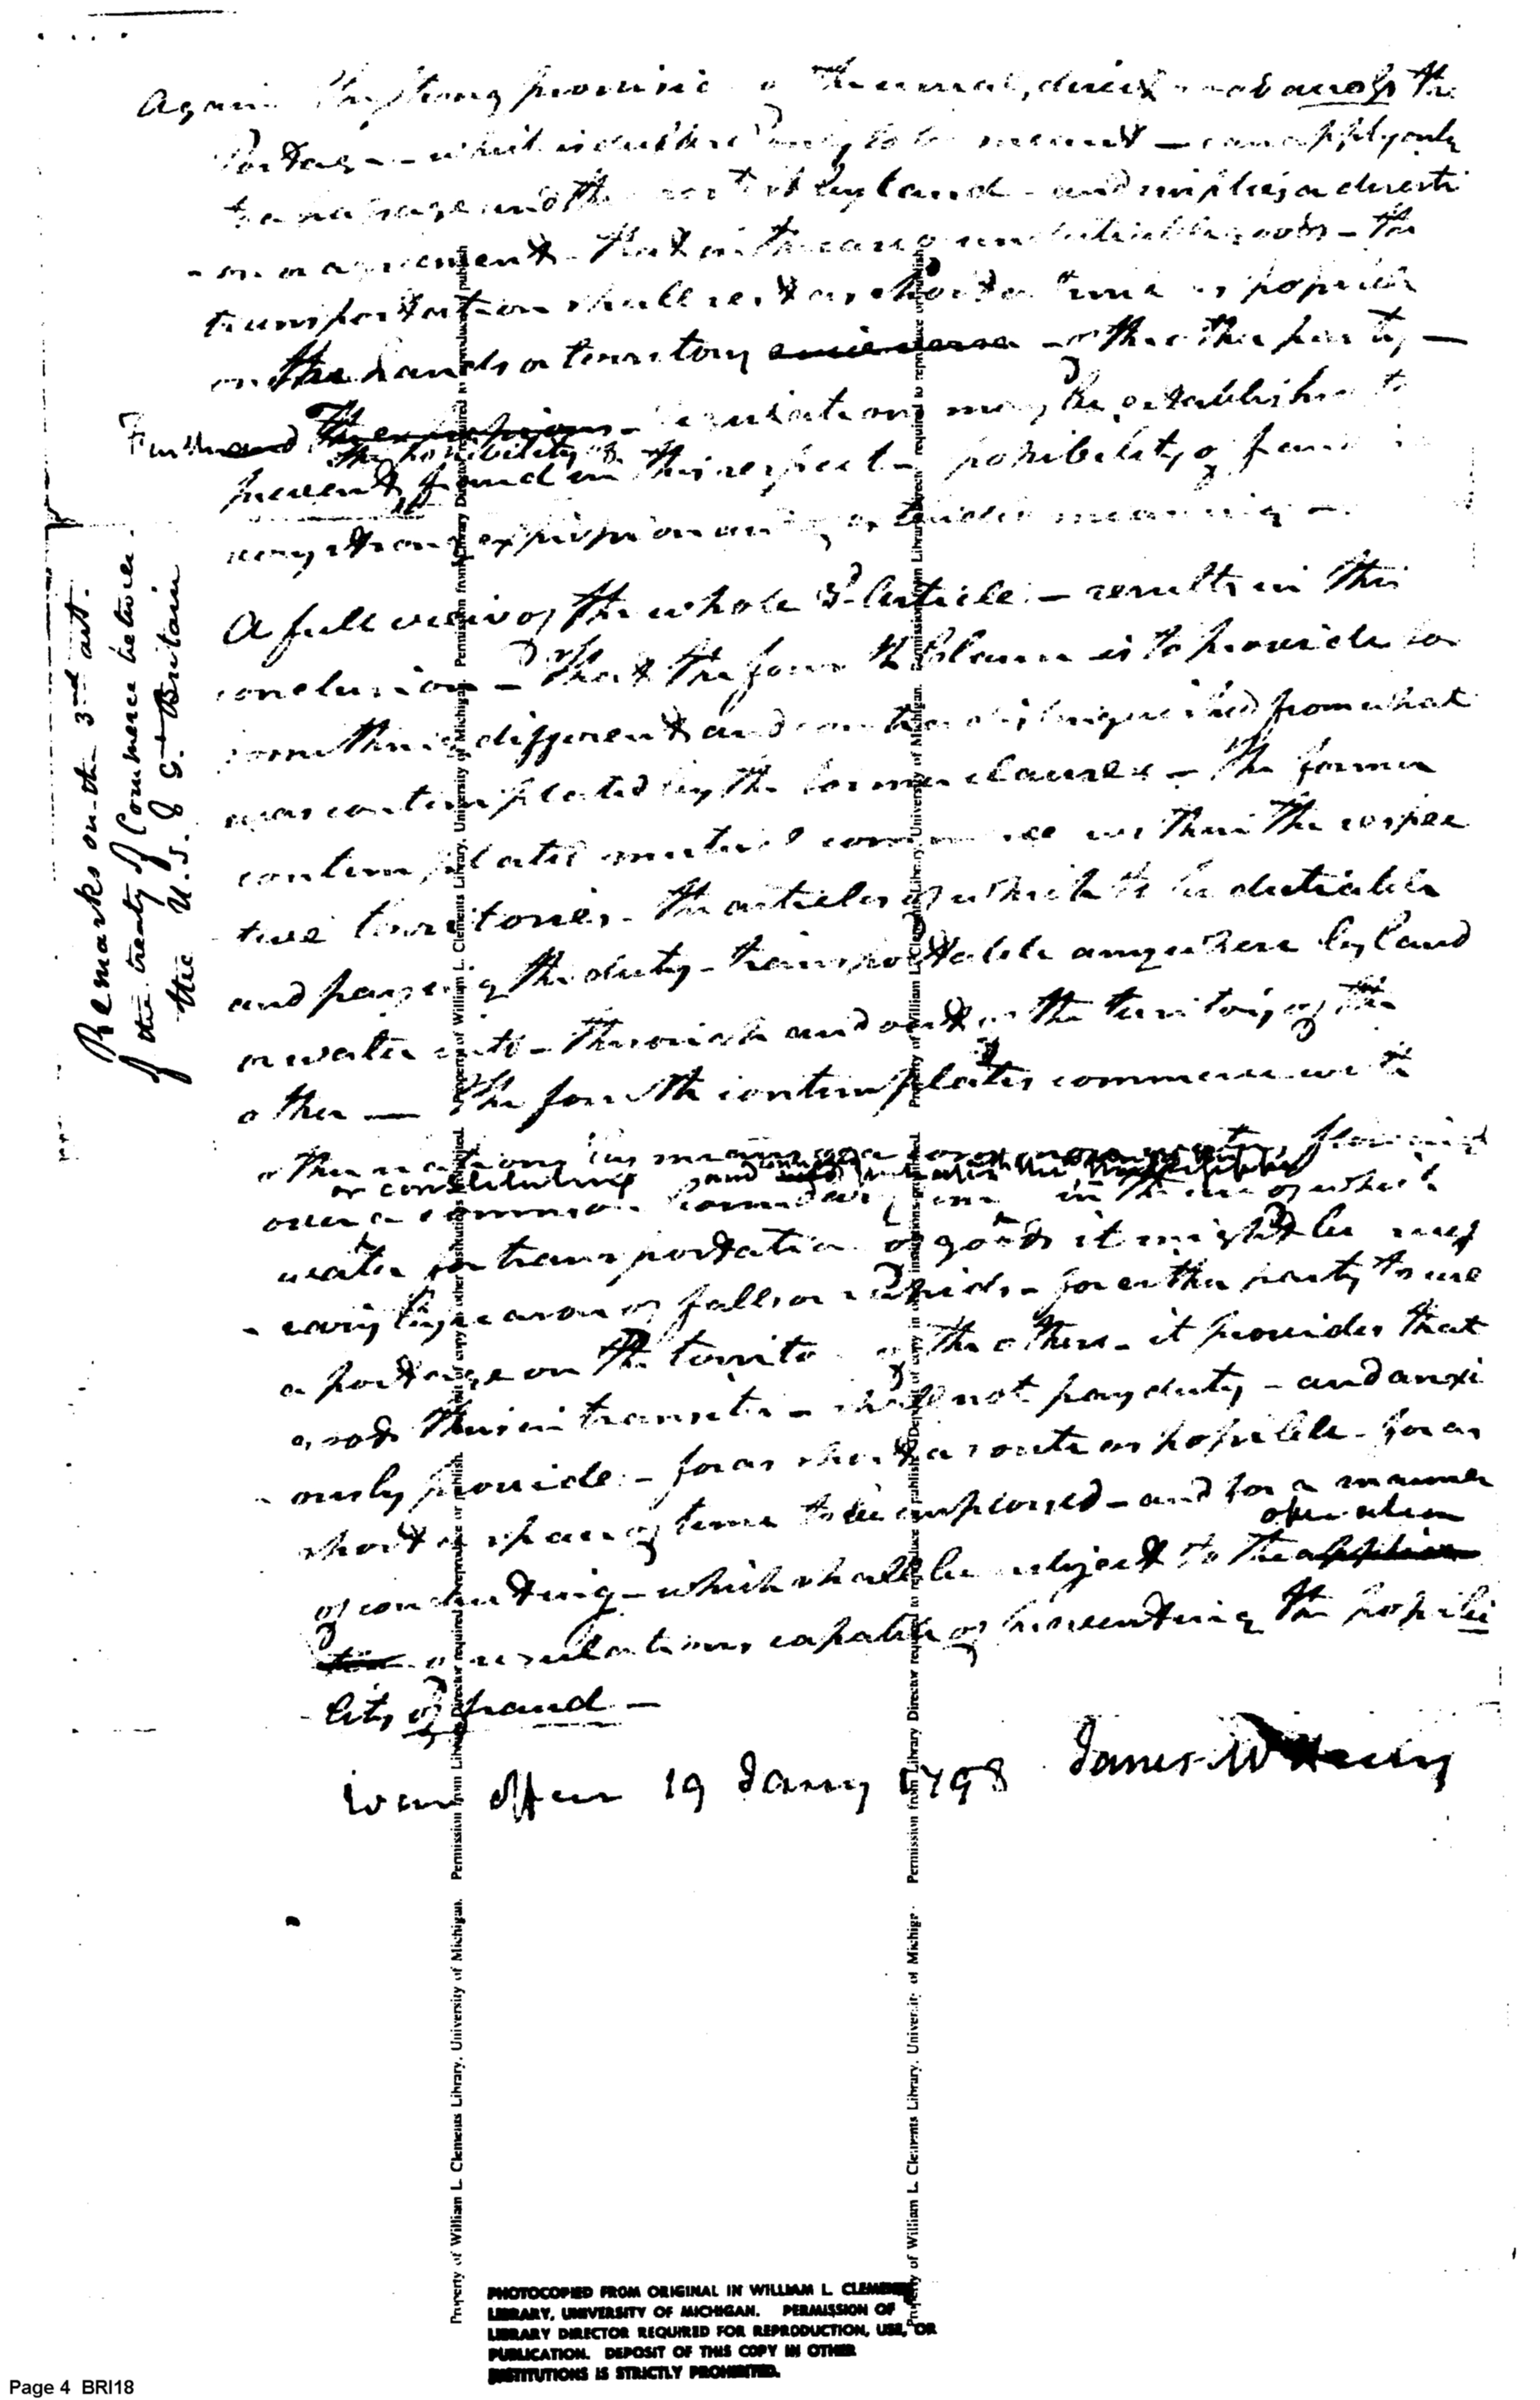 Again the strong provision of the usual, direct road across the
Portage — which is doubtless only to be meant — can apply only
to a passage and the most by land — and implies a directi
on or agreement — that in the case of undutiable goods — the
transportation shall rest as short a time as possible
on the hands or territory of the other party —
Further The regulations may be established to
the possibility of
prevent fraud in this respect — possibility of fraud
very strong expression and of extensive meaning —
A full view of the whole 3d Article — results in this
conclusion — That the fourth Clause is to provide for
something different and contradistinguished from what
was contemplated by the former clauses — The former
contemplated mutual commerce within the respec
tive territories — the articles of which to be dutiable
and paying the duty — transportable anywhere by land
or water into — through and out of the territory of the
other — The fourth contemplates commerce with
other nations by means of a flowing
or constituting and
over a common boundary in the use of which
water for transportation of goods it might be neces
- sary by reason of falls or rapids — for either party to use
a portage on the territory of the others — it provides that
goods thus in transitu — shall not pay duty — and anxi
ously provide — for as short a route as possible — for as
short a space of time to be employed — and for a manner
operation
of conducting — which shall be subject to the
of regulations capable of preventing the possibi
- lity of fraud —
War Office 19 Jany 1798 James McHenry
Remarks on the 3rd art.
of the treaty of Commerce between
the U.S. & G. Britain
Property of William L. Clements Library, University of Michigan. Permission from Library Director required to reproduce or publish. Deposit of copy in other institutions prohibited.
Property of William L. Clements Library, University of Michigan. Permission from Library Director required to reproduce or publish. Deposit of copy in other institutions prohibited.
PHOTOCOPIED FROM ORIGINAL IN WILLIAM L. CLEMENTS
LIBRARY, UNIVERSITY OF MICHIGAN. PERMISSION OF
LIBRARY DIRECTOR REQUIRED FOR REPRODUCTION, USE, OR
PUBLICATION. DEPOSIT OF THIS COPY IN OTHER
INSTITUTIONS IS STRICTLY PROHIBITED.
Page 4 BRI18